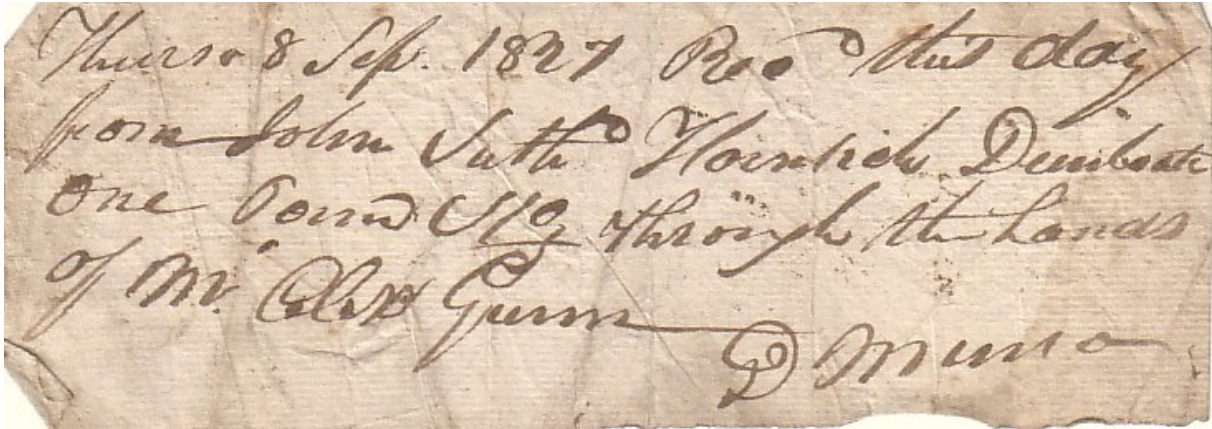 Thurso 8 Sep. 1827 Recd this day
from John Suthd Dunbeath
one Pound Stg through the hands
of Mr. Alexr Gunn
D Munro